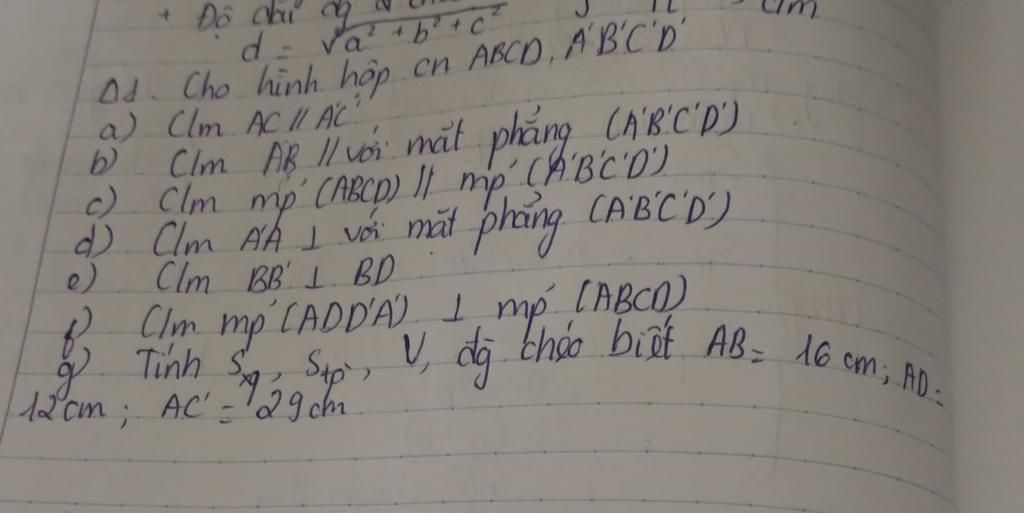 + Độ dài đg
d = √a² + b² + c²
Δ1. Cho hình hộp cn ABCD, A'B'C'D'
a) C/m AC // A'C'
b) C/m AB // với mặt phẳng (A'B'C'D')
c) C/m mp' (ABCD) // mp' (A'B'C'D')
d) C/m A'A ⊥ với mặt phẳng (A'B'C'D')
e) C/m BB' ⊥ BD
f) C/m mp' (ADD'A') ⊥ mp' (ABCD)
g) Tính Sxq, Stp, V, đg chéo biết AB = 16 cm; AD =
12 cm; AC' = 29 cm